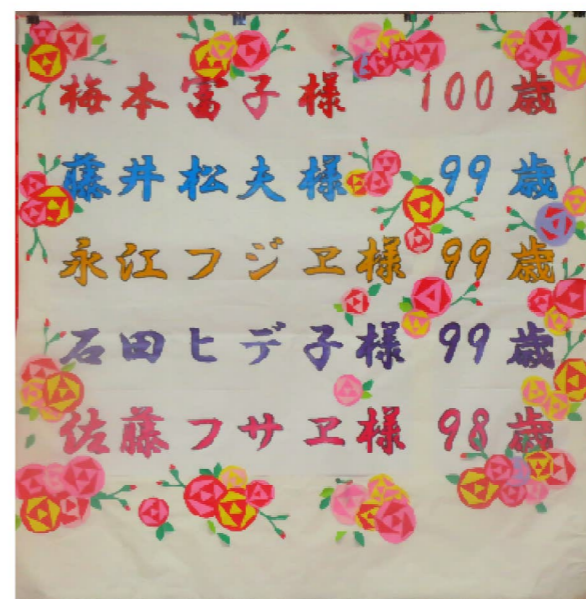 梅本富子様 100歳
藤井松夫様 99歳
永江フジヱ様 99歳
石田ヒデ子様 99歳
佐藤フサヱ様 98歳